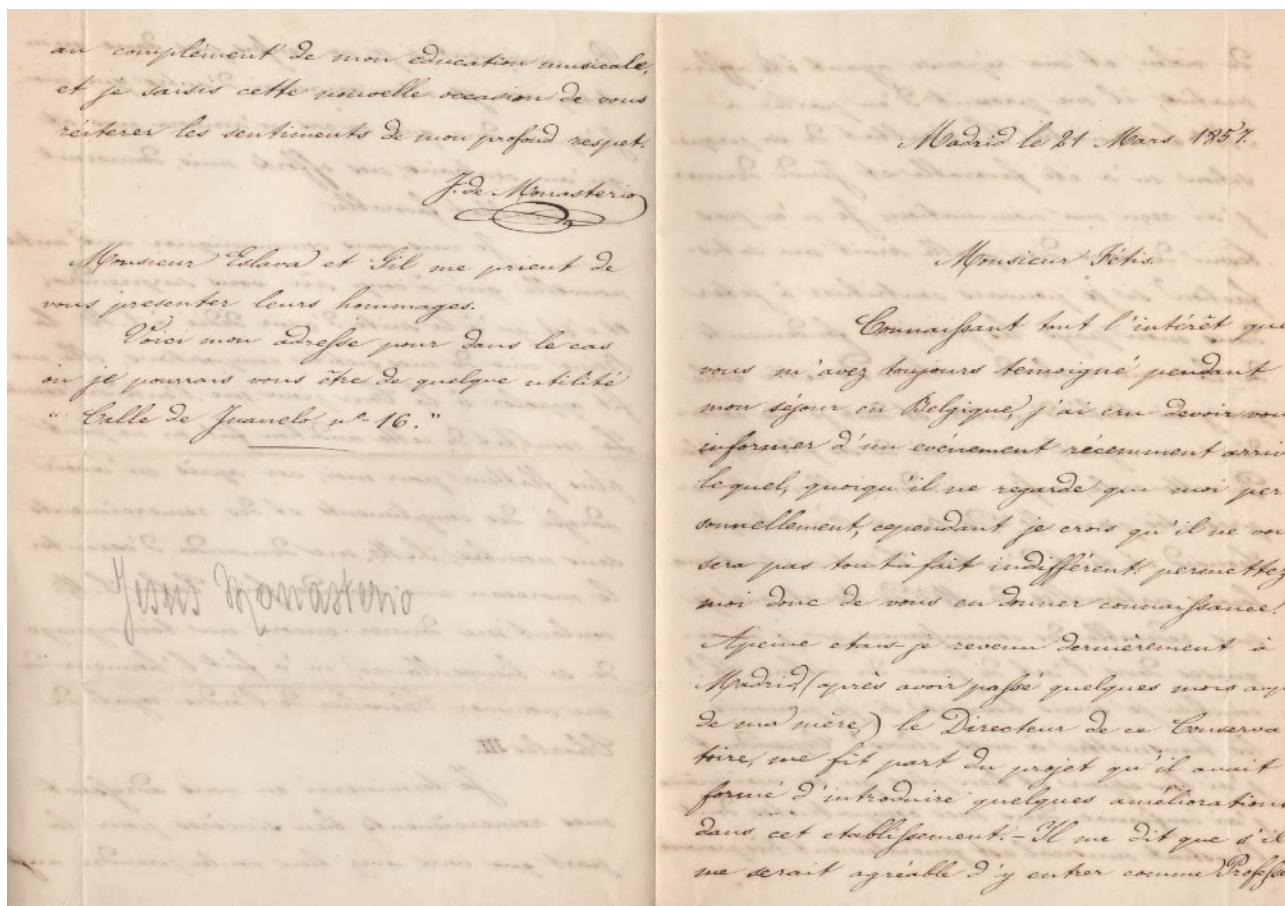 au complément de mon education musicale,
et je saisis cette nouvelle occasion de vous
réiterer les sentiments de mon profond respet.
J. de Monasterio
Monsieur Eslava et Gil me prient de
vous presenter leurs hommages.
Voici mon adresse pour dans le cas
où je pourrais vous être de quelque utilité
"Calle de Juanelo nº 16."
Jesus Monasterio
Madrid le 21 Mars 1857.
Monsieur Fétis.
Connaissant tout l'intérêt que
vous m'avez toujours témoigné pendant
mon séjour en Belgique, j'ai cru devoir vou
informer d'un evénement récemment arriv
lequel, quoiqu'il ne regarde que moi per
sonnellement, cependant je crois qu'il ne vou
sera pas tout à fait indifférent: permettez
moi donc de vous en donner connaissance.
Apeine etais-je revenu dernièrement à
Madrid, (après avoir passé quelques mois aup
de ma mère,) le Directeur de ce Conserva
toire, me fit part du projet qu'il avait
formé d'introduire quelques amélioration
dans cet etablissement. - Il me dit que s'il
me serait agréable d'y entrer comme Professe